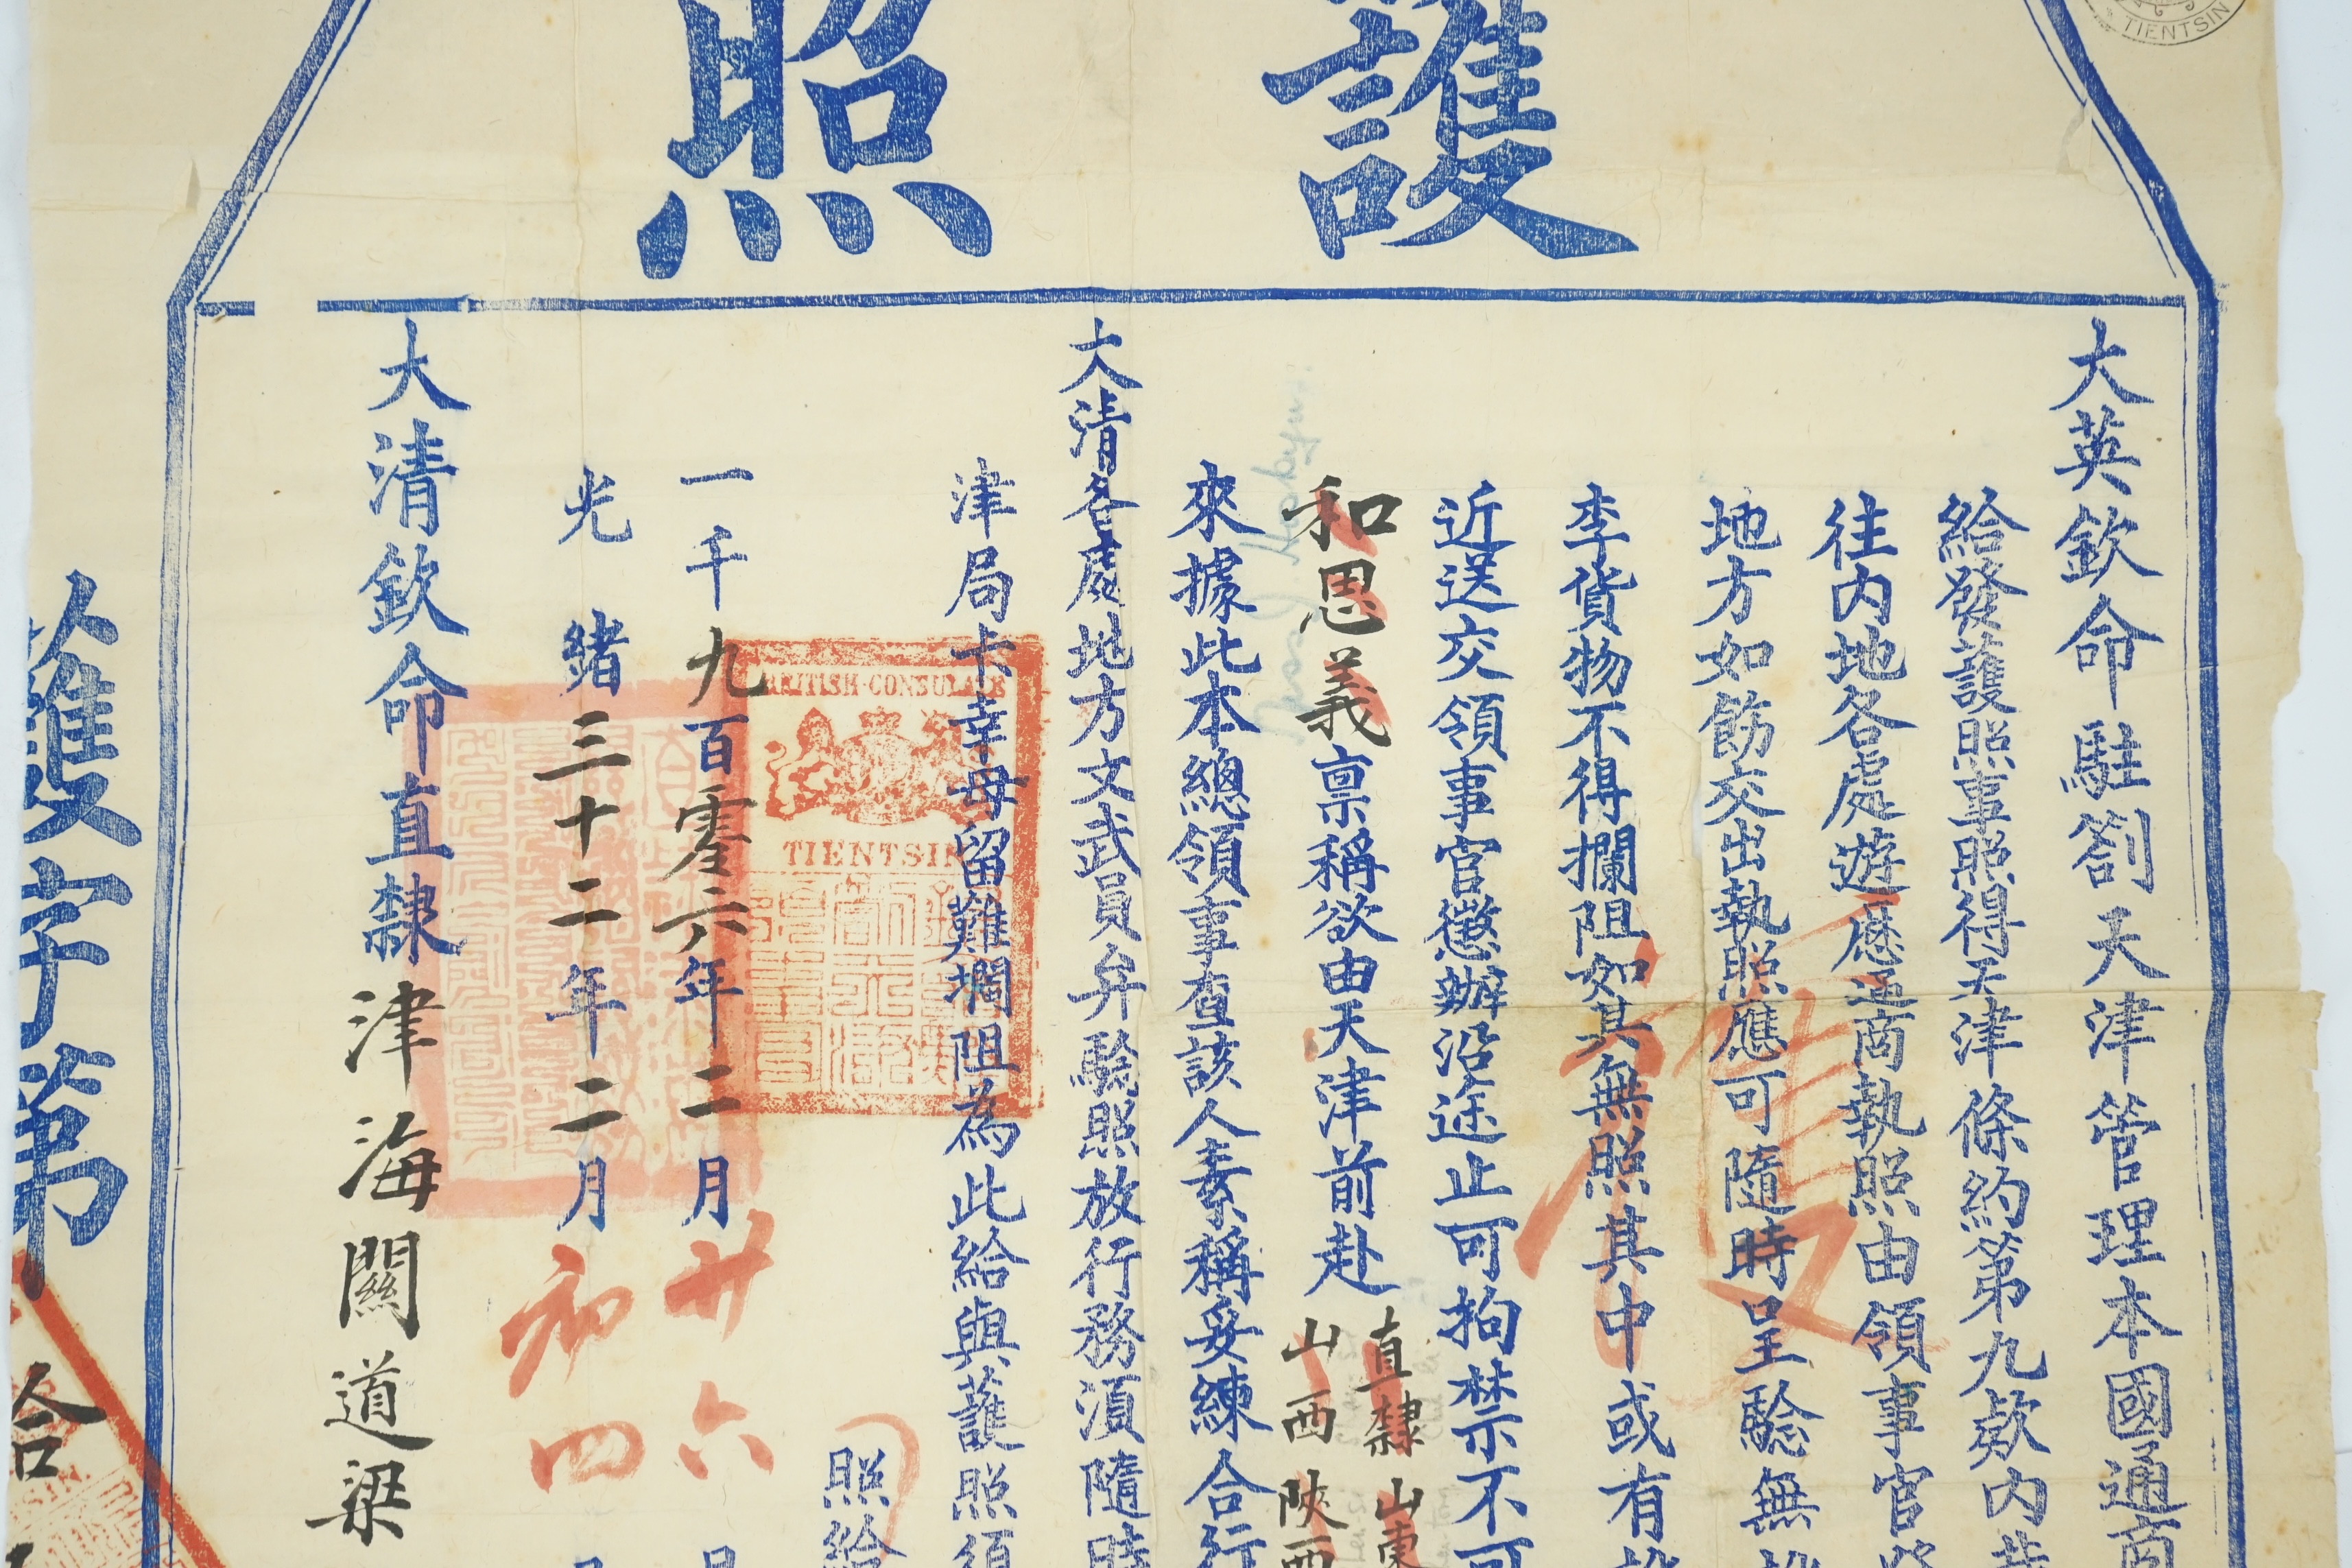 護照
大英欽命駐劄天津管理本國通商
給發護照事照得天津條約第九欵內載
往內地各處遊歷通商執照由領事官發
地方如飭交出執照應可隨時呈驗無
李貨物不得攔阻如其無照其中或有
近送交領事官懲辦沿途止可拘禁不可
和思義稟稱欲由天津前赴直隸山東山西陝西
來據此本總領事查該人素稱妥練合行
大清各處地方文武員弁驗照放行務須隨時
津局卡幸毋留難攔阻為此給與護照須
照給
一千九百零六年二月廿六日
光緒三十二年二月初四日
大清欽命直隸津海關道梁
護字第
合
BRITISH·CONSULATE
TIENTSIN
TIENTSIN